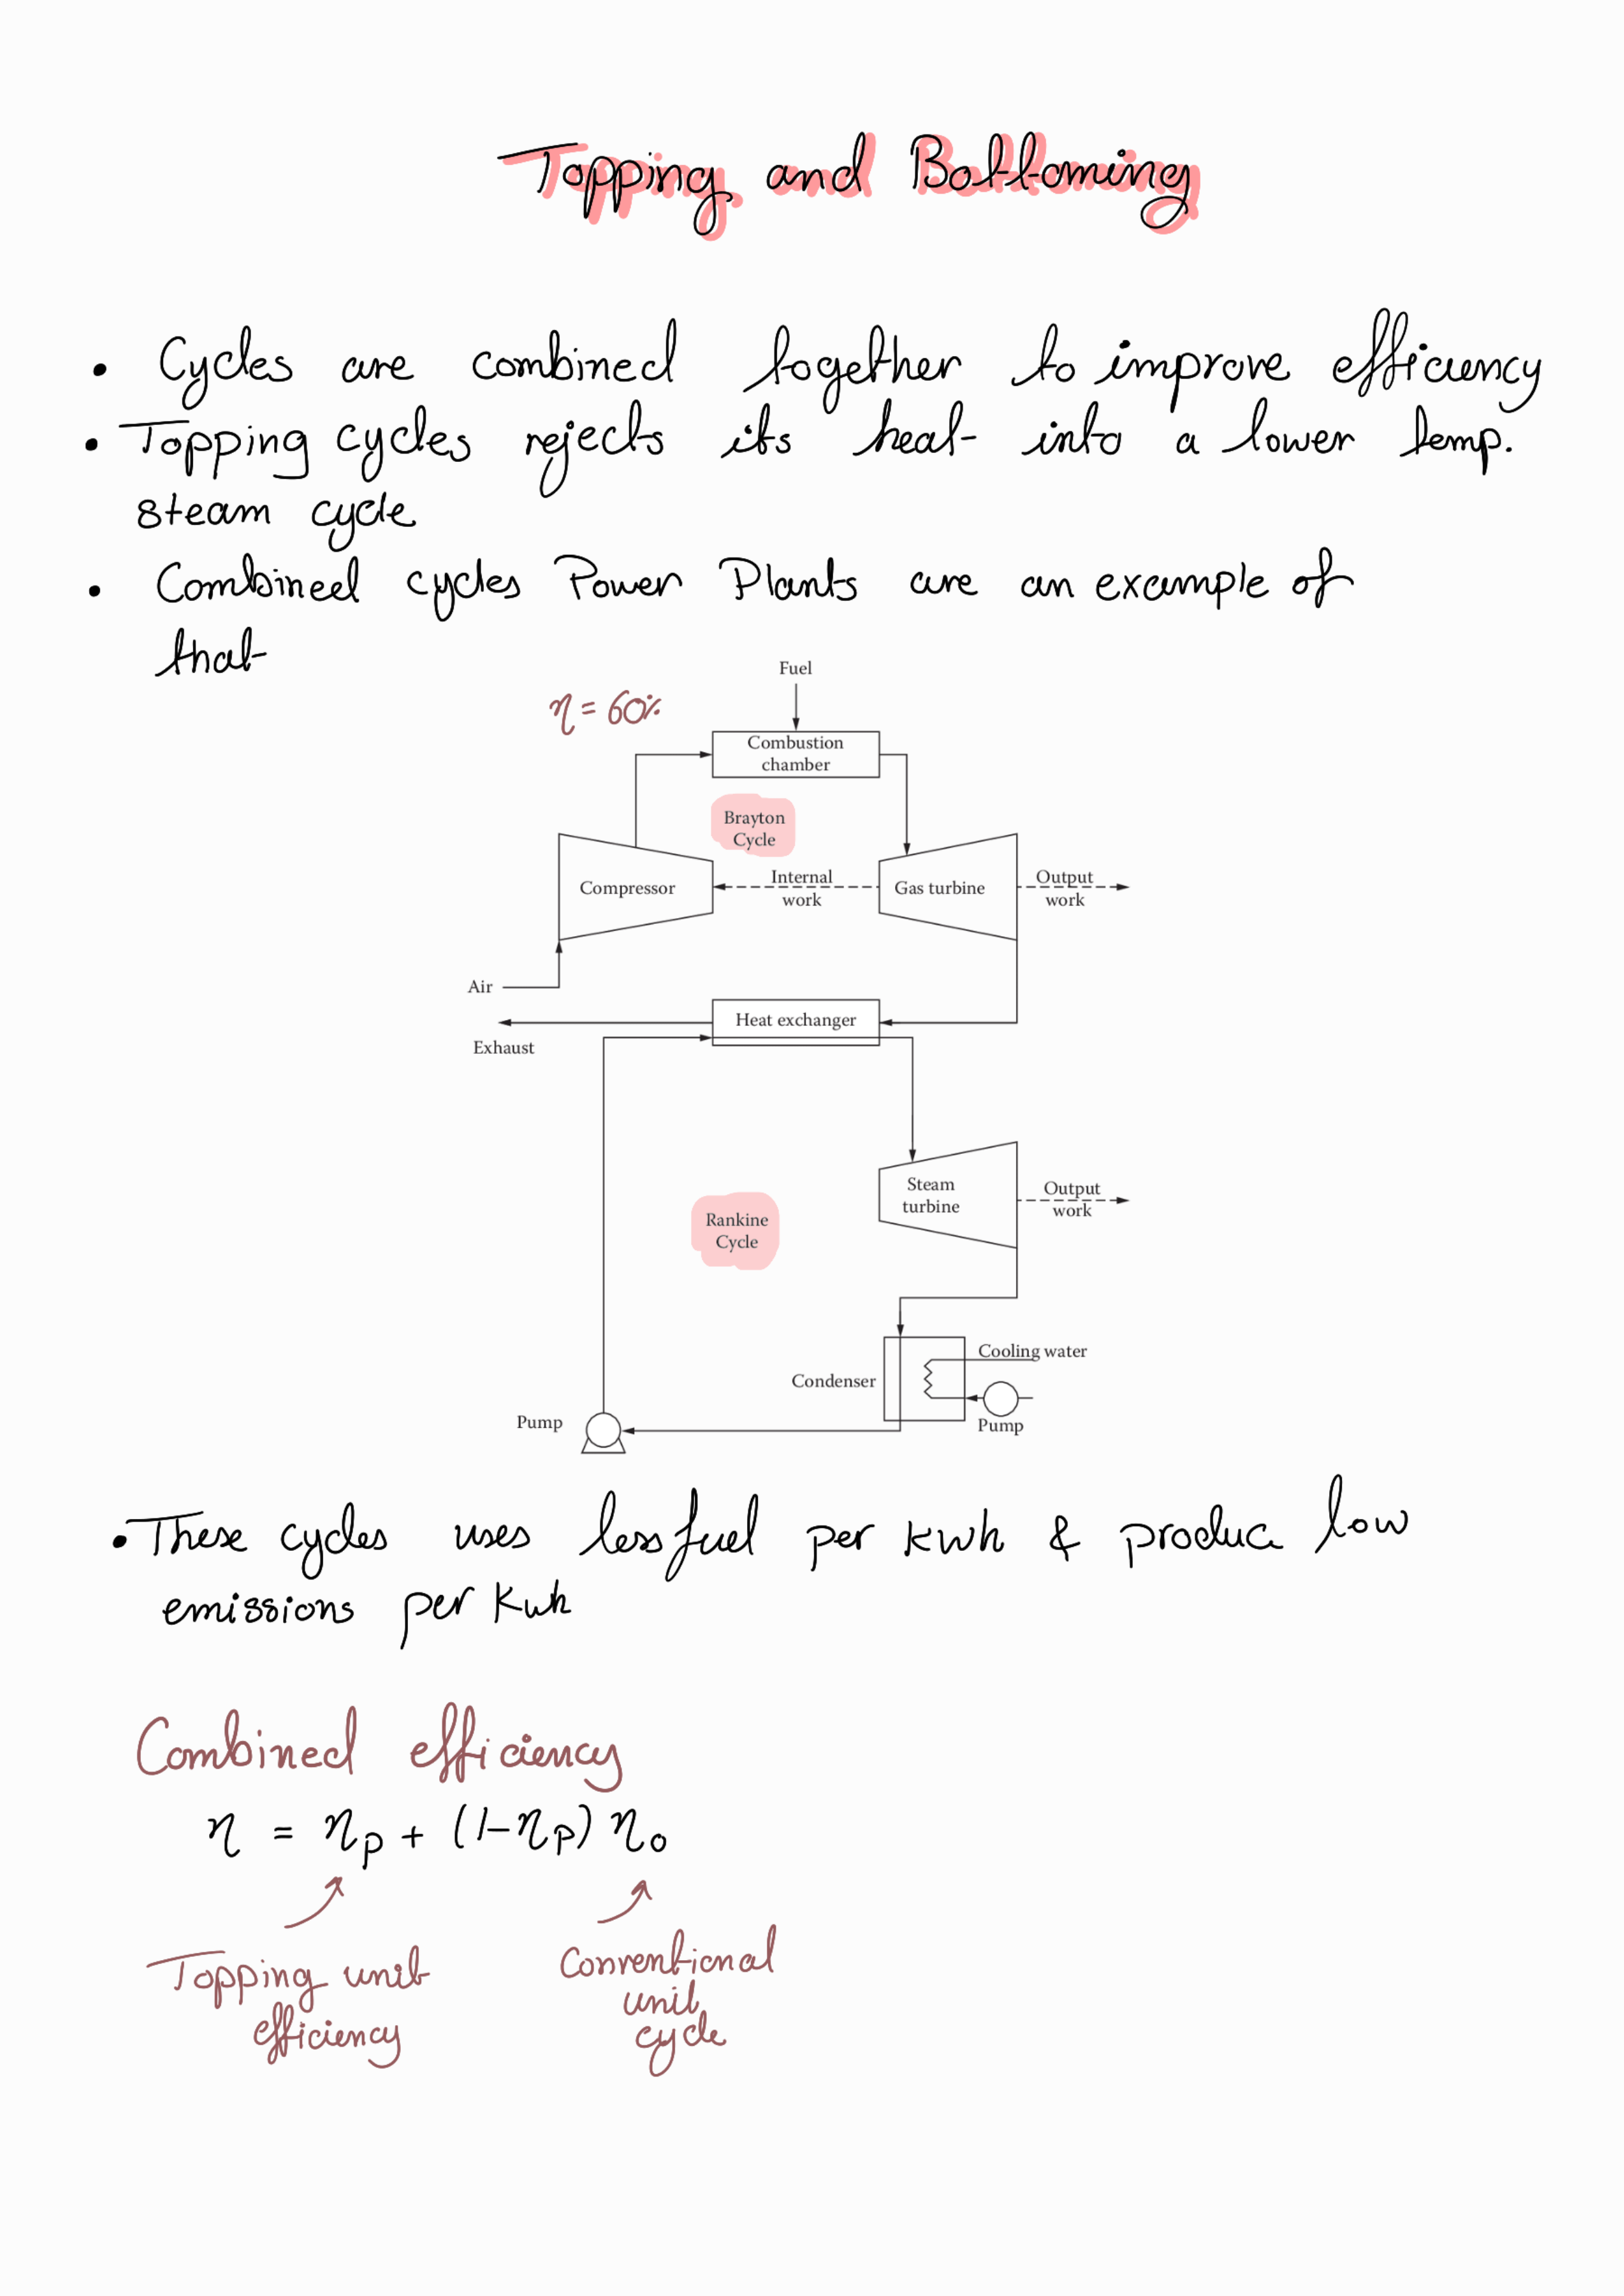 Topping and Bottoming
• Cycles are combined together to improve efficiency
• Topping cycles rejects its heat into a lower temp.
steam cycle
• Combined cycles Power Plants are an example of
that
η = 60%
Fuel
Combustion
chamber
Brayton
Cycle
Compressor
Internal
work
Gas turbine
Output
work
Air
Heat exchanger
Exhaust
Steam
turbine
Output
work
Rankine
Cycle
Cooling water
Condenser
Pump
Pump
• These cycles uses less fuel per kwh & produce low
emissions per Kwh
Combined efficiency
η = ηp + (1-ηp) ηo
Topping unit
efficiency
Conventional
unit
cycle